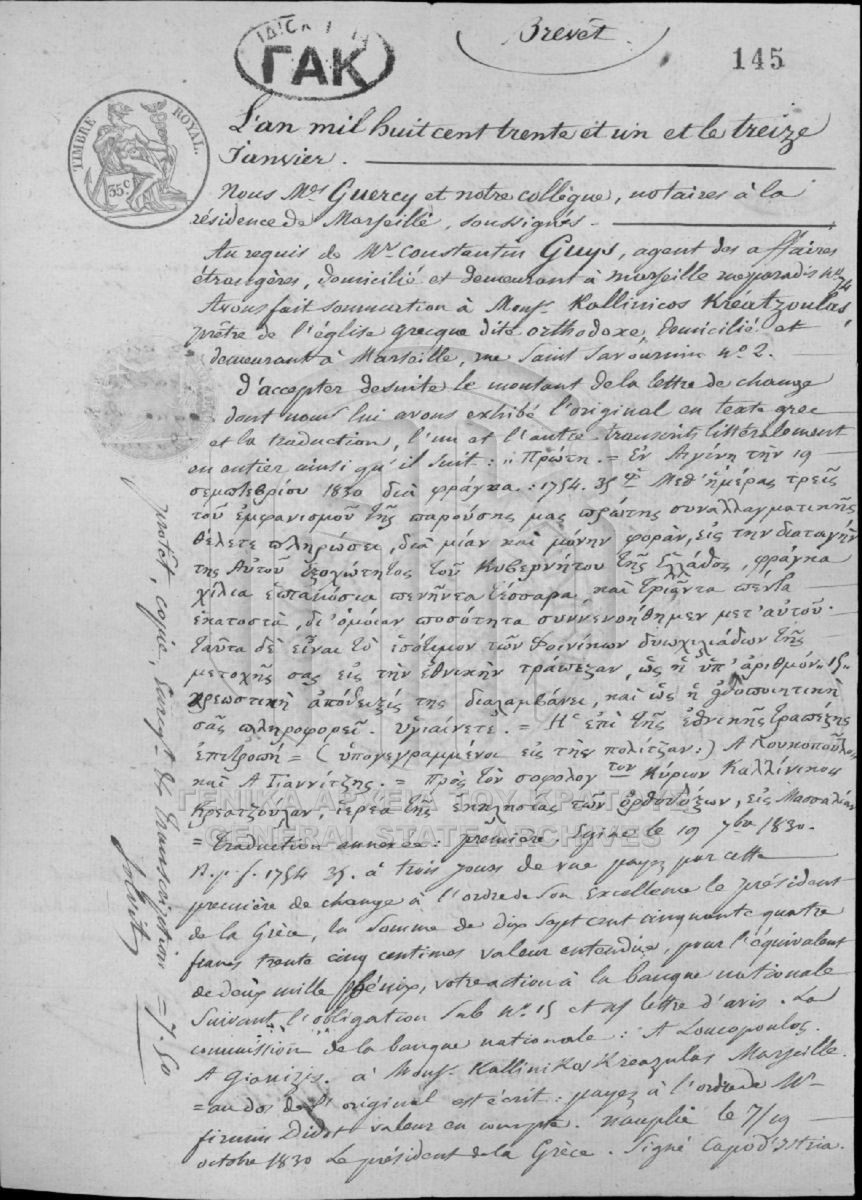 Brevet.
ΓΑΚ
145
TIMBRE ROYAL.
35c
L'an mil huit cent trente et un et le treize
Janvier.
Nous Mes Guercy et notre collègue, notaires à la
résidence de Marseille, soussignés.
Au requis de Mr Constantin Guys, agent des affaires
étrangères, domicilié et demeurant à Marseille rue paradis no 74
Avons fait sommation à Monsr Kallinicos Kréatzoulas,
prêtre de l'église grecque dite orthodoxe, domicilié et
demeurant à Marseille, rue Saint Savournin no 2.
D'accepter desuite le montant de la lettre de change
dont nous lui avons exhibé l'original en texte grec
et la traduction, l'un et l'autre transcrits littéralement
en entier ainsi qu'il suit : „ Πρώτη. = Ἐν Αἰγίνῃ τὴν 19
σεμπτεβρίου 1830 διὰ φράγκα : 1754. 35 Μεθ' ἡμέρας τρεῖς
τοῦ ἐμφανισμοῦ τῆς παρούσης μας πρώτης συναλλαγματικῆς
θέλετε πληρώσει, διὰ μίαν καὶ μόνην φοράν, εἰς την διαταγὴν
της Αὐτοῦ Ἐξοχώτητος τοῦ Κυβερνήτου τῆς Ἑλλάδος, φράγκα
χίλια ἑπτακόσια πενῆντα τέσσαρα, καὶ τριάντα πέντε
ἑκατοστὰ, δι' ὁμοίαν ποσότητα συννενοήθημεν μετ' αὐτοῦ.
ταῦτα δὲ εἶναι τὸ ἰσότιμον τῶν Φοινίκων δυωχιλιάδων τῆς
μετοχῆς σας εἰς τὴν ἐθνικὴν τράπεζαν, ὡς ἡ ὑπ' ἀριθμὸν „15„
χρεωστικὴ ἀπόδειξίς της διαλαμβάνει, καὶ ὡς ἡ εἰδοποιητικὴ
σᾶς πληροφορεῖ. ὑγιαίνετε. = Ἡ ἐπὶ τῆς ἐθνικῆς τραπέζης
ἐπιτροπὴ = (ὑπογεγραμμένοι εἰς τὴν πολίτζαν :) Α Κουκοπουλος
καὶ Α Γιαννίτζης. = Πρὸς τὸν σοφολογ τον Κύριον Καλλίνικον
Κρεατζούλαν, ἱερέα τῆς ἐκκλησίας τῶν ὀρθοδόξων, εἰς Μασσαλίαν
ΓΕΝΙΚΑ ΑΡΧΕΙΑ ΤΟΥ ΚΡΑΤΟΥΣ
GENERAL STATE ARCHIVES
= traduction annexée : première Egine le 19 7bre 1830.
B. p. f. 1754 35. à trois jours de vue payez par cette
première de change à l'ordre de Son Excellence le président
de la Grèce, la Somme de dix sept cent cinquante quatre
francs trente cinq centimes valeur entendue, pour l'équivalent
de deux mille phénix, votre action à la banque nationale
Suivant l'obligation Sub No 15 et lettre d'avis. La
commission de la banque nationale : A Loucopoulos.
A Gianizis. à Monsr Kallinikos Kreazulas Marseille.
= au dos de l'original est écrit : payez à l'ordre de Mr
firmin Didot valeur en compte. nauplie le 7/19
octobre 1830 Le président de la Grèce. Signé Capod'istria.
protêt, copie, Enregt. de transcription = 7.50